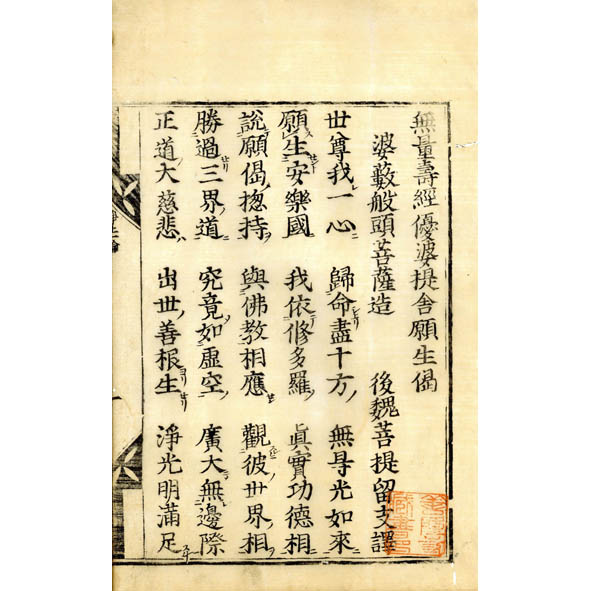 無量壽經優婆提舍願生偈
婆藪般頭菩薩造 後魏菩提留支譯
世尊我一心 歸命盡十方 無㝵光如來
願生安樂國 我依修多羅 眞實功德相
說願偈揔持 與佛教相應 觀彼世界相
勝過三界道 究竟如虛空 廣大無邊際
正道大慈悲 出世善根生 淨光明滿足